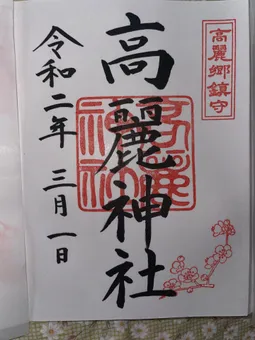 高麗郷鎮守
高麗神社
令和二年 三月一日
高麗
神社